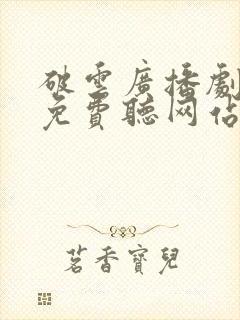 破雲廣播劇
免費聽网站
茗香寶兒